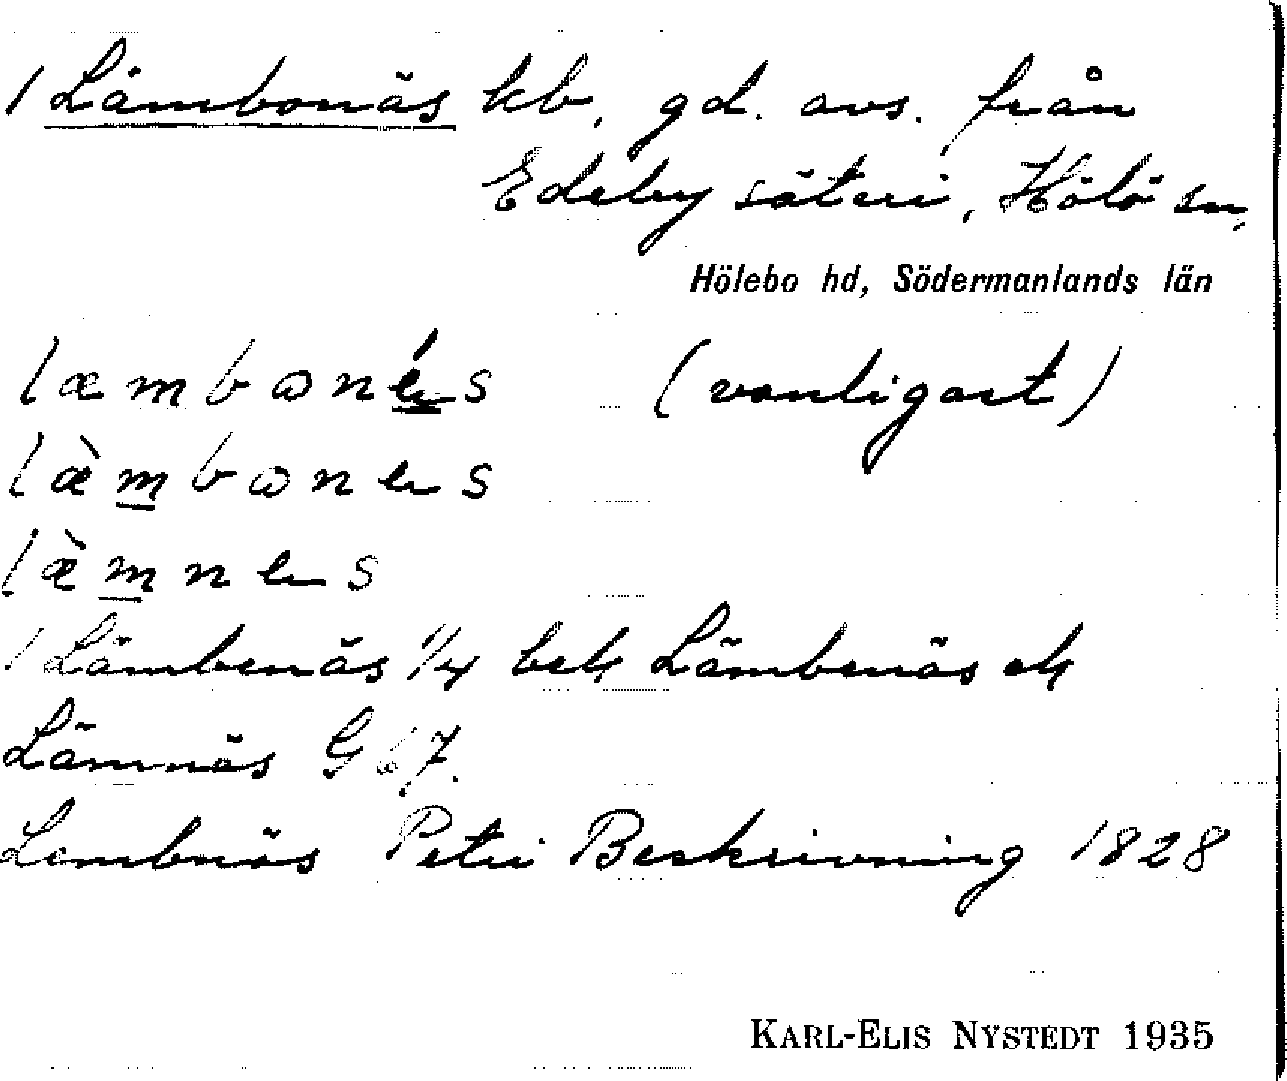 1 Lämbonäs kb, gd. avs. från
Edeby säteri, Hölö sn,
Hölebo hd, Södermanlands län
læmbωnés (vanligast)
læ̀mbωnes
læ̀mnes
1 Lämbenäs 1/4 Lämbenäs
Lämnäs G 67.
Lembnäs Petri Beskrivning 1828
KARL-ELIS NYSTEDT 1935